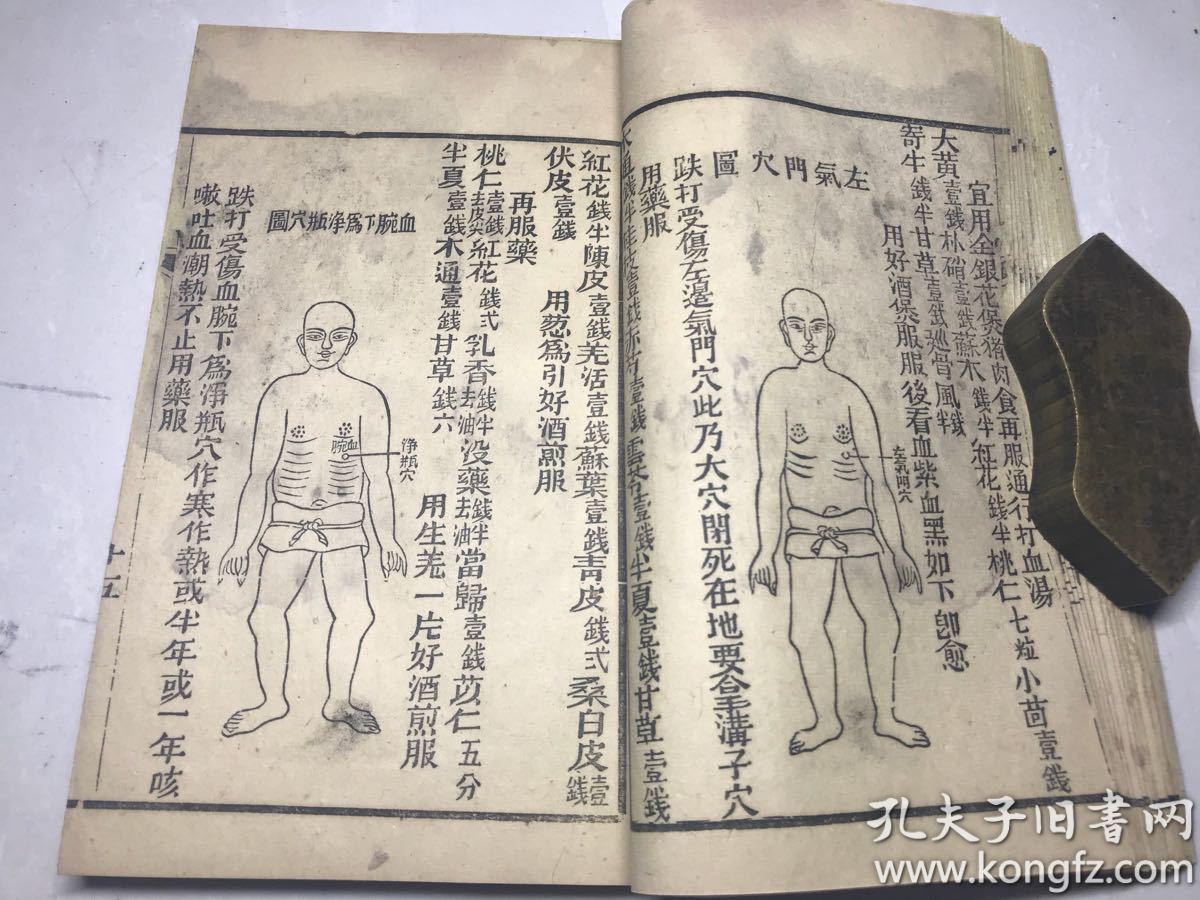 宜用金銀花煲猪肉食再服通行打血湯
大黄壹錢朴硝壹錢蘇木錢半紅花錢半桃仁七粒小茴壹錢
寄牛錢半甘草壹錢巡骨風錢半
用好酒煲服服後看血紫血黑如下卽愈
左氣門穴圖
左氣門穴
跌打受傷左邊氣門穴此乃大穴閉死在地要拿溝子穴
用藥服
錢半桂皮壹錢赤芍壹錢壹錢半夏壹錢甘草壹錢
紅花錢半陳皮壹錢羌活壹錢蘇葉壹錢靑皮錢弍桑白皮壹錢
伏皮壹錢
用葱爲引好酒煎服
再服藥
桃仁壹錢去皮尖紅花錢弍乳香錢半去油没藥錢半去油當歸壹錢苡仁五分
半夏壹錢木通壹錢甘草錢六
用生羌一片好酒煎服
血腕下爲净瓶穴圖
血腕
淨瓶穴
跌打受傷血腕下爲淨瓶穴作寒作熱或半年或一年咳
嗽吐血潮熱不止用藥服
十五
孔夫子旧书网
www.kongfz.com